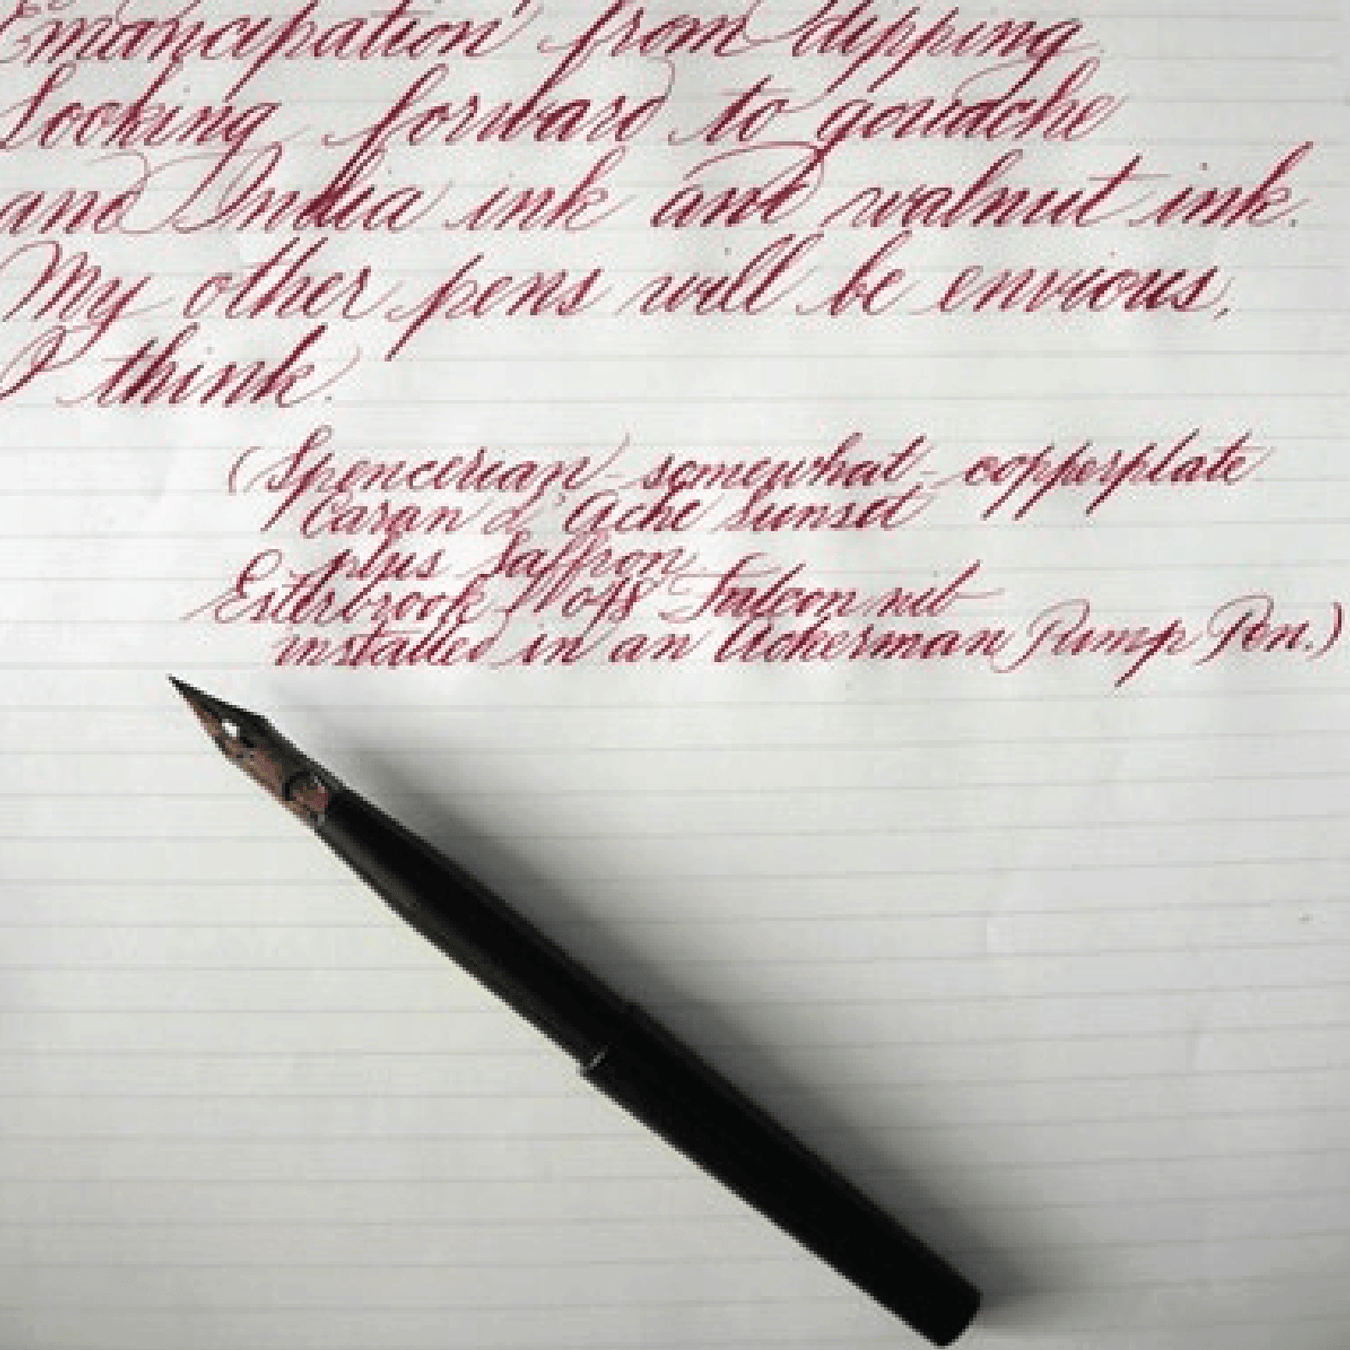 Emancipation from dipping.
Looking forward to gouache
and India ink and walnut ink.
My other pens will be envious,
I think.
(Spencerian-somewhat-copperplate
Caran d'Ache sunset
plus Saffron.
Esterbrook Falcon nib
installed in an Ackerman Pump Pen.)